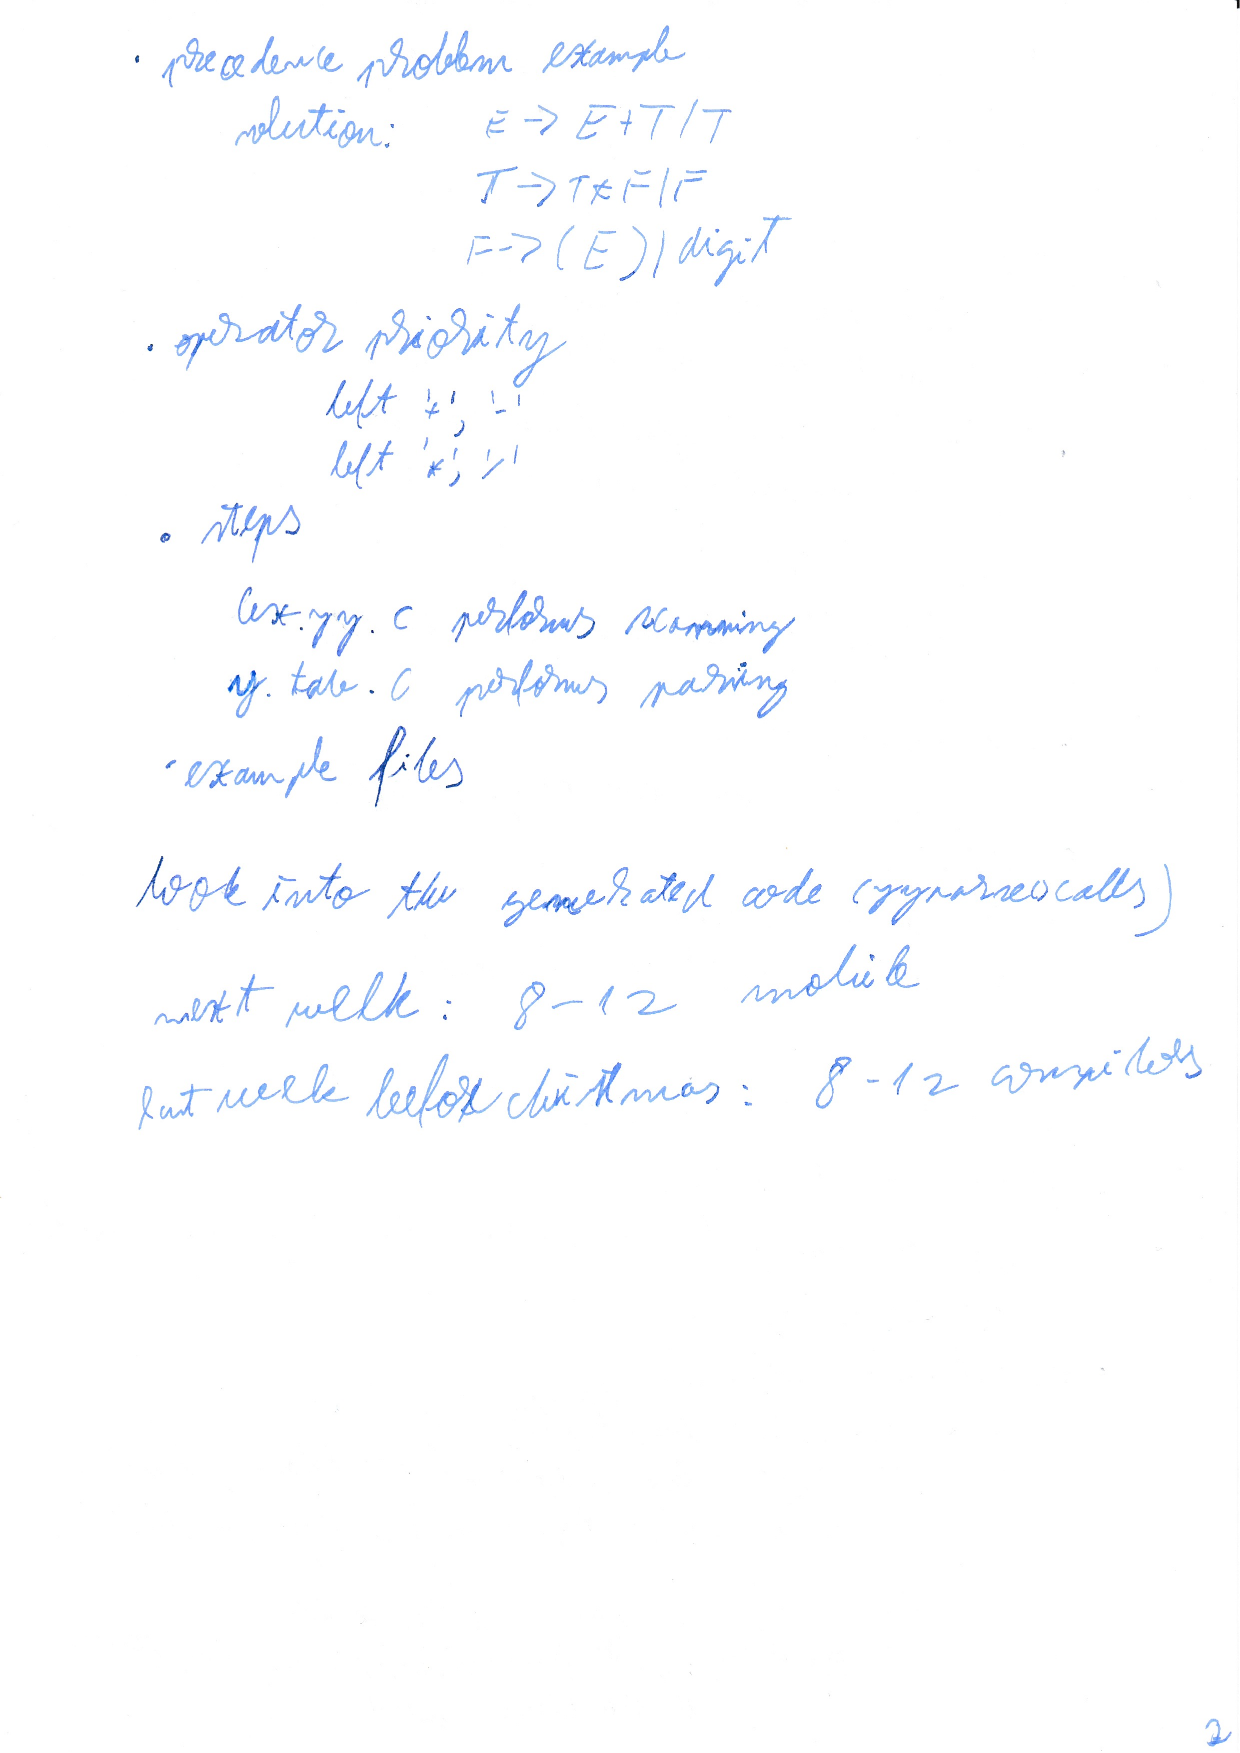 · precedence problem example
solution: E -> E+T/T
T -> T*F|F
F -> (E)|digit
· operator priority
left '+', '-'
left '*', '/'
· steps
lex.yy.c performs scanning
y.tab.c performs parsing
· example files
look into the generated code (yyparse() calls)
next week: 8-12 mobile
last week before christmas: 8-12 compilers
2